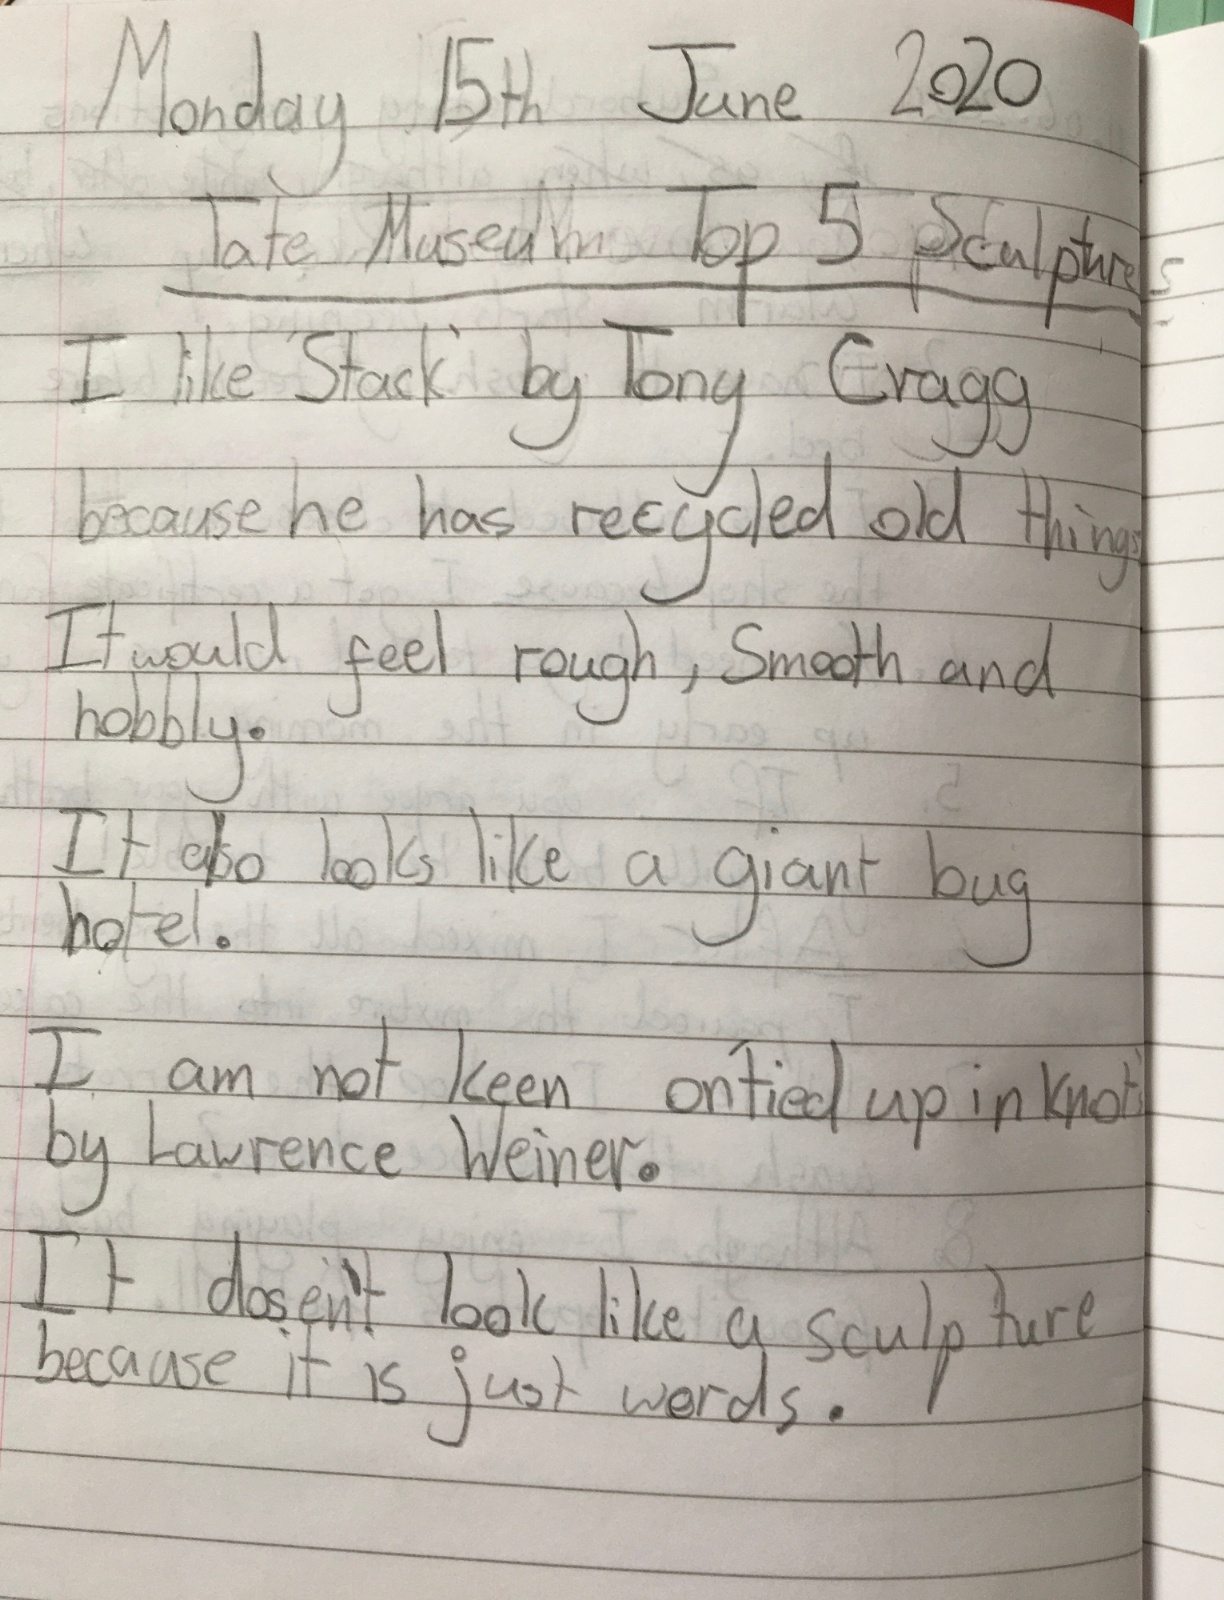 Monday 15th June 2020
Tate Museum Top 5 Sculptures
I like 'Stack' by Tony Cragg
because he has recycled old things
It would feel rough, Smooth and
hobbly.
It also looks like a giant bug
hotel.
I am not keen on tied up in knots
by Lawrence Weiner.
It dosen't look like a sculpture
because it is just words.